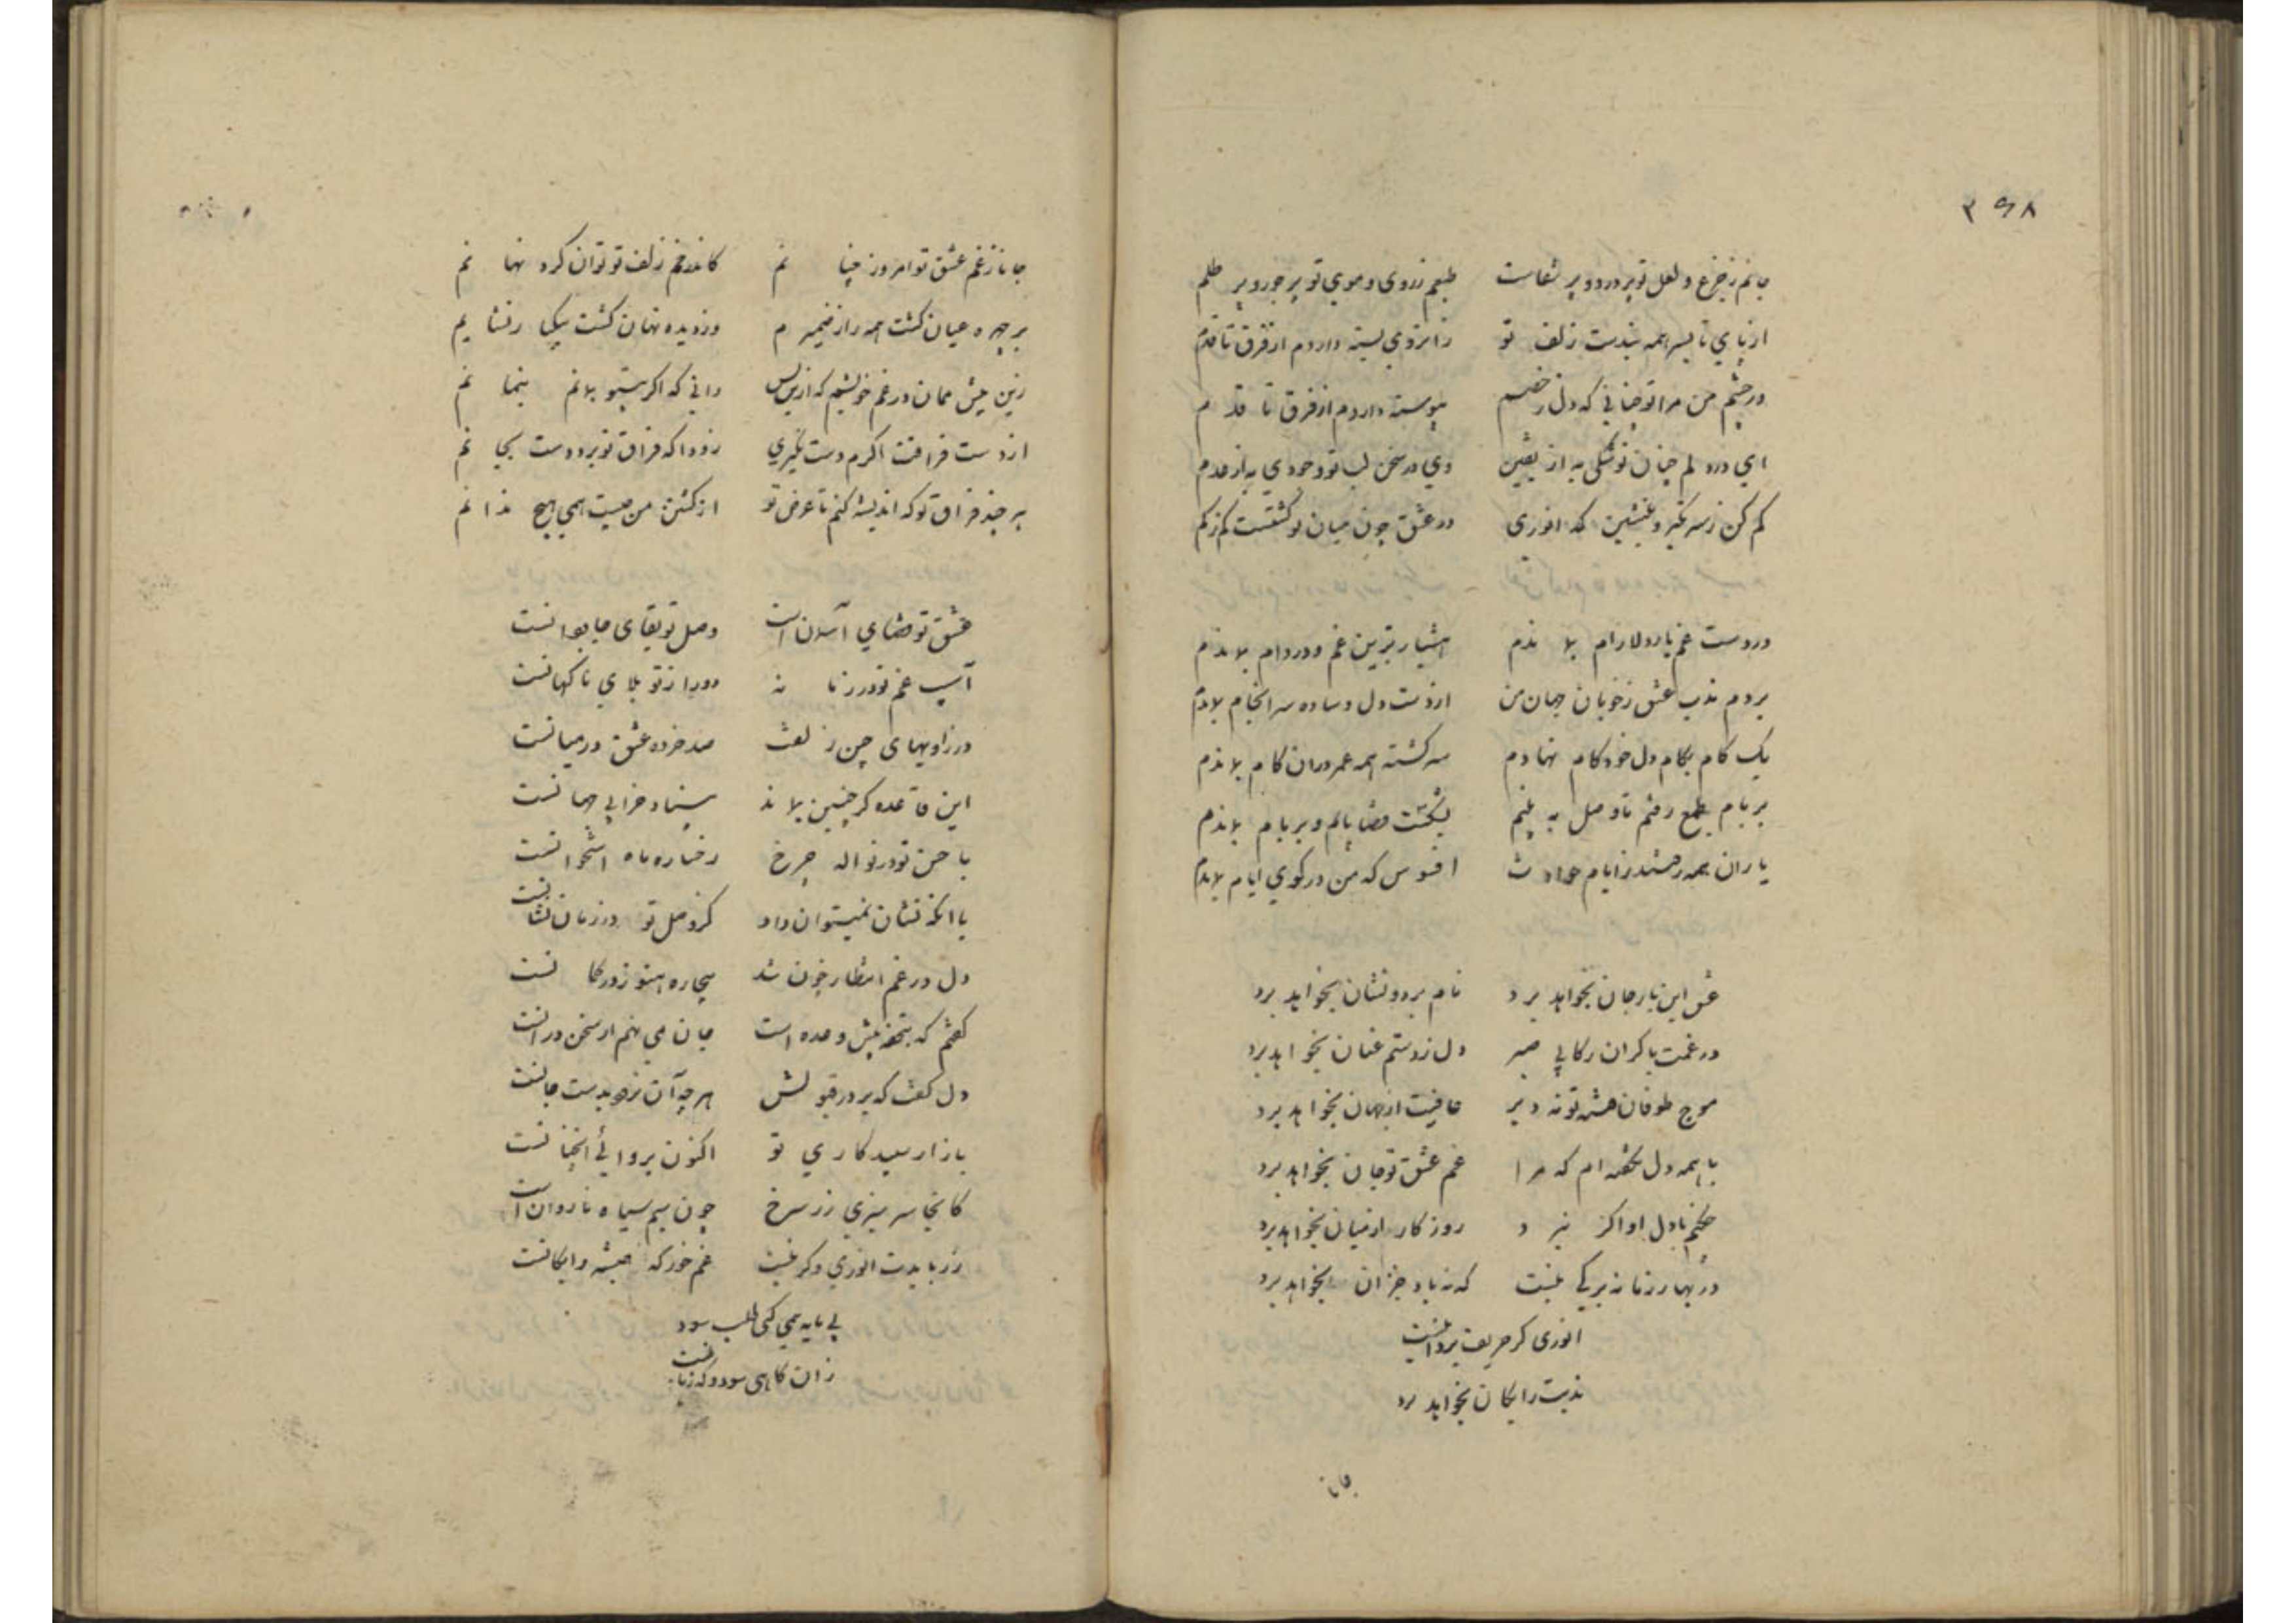 ۳۹۸
جانم ز جزع و لعل تو پر درد و پر شفاست طبعم ز روی و موی تو پر جور و پر ظلم
از پای تا بسر همه بندست زلف تو زابروی بسته دارم از فرق تا قدم
در چشم من مرا تو چنانی که دل ز خصم پیوسته دارم از فرق تا قدم
ای در دلم چنان تو شکی به از یقین وی در سخن لب تو وجودی به از عدم
کم کن ز سر تکبر و بنشین که انوری در عشق چون میان تو گشتست کم ز کم
در دست غم یار دلارام بماندم هشیارترین غم و در دام بماندم
بردم ندب عشق ز خوبان جهان من از دست دل ساده سرانجام بماندم
یک گام بکام دل خودکام نهادم سرگشته همه عمر در آن گام بماندم
بر بام طمع رفتم تا وصل به بینم بشکست قضا پایم و بر بام بماندم
یاران همه رستند ز ایام حوادث افسوس که من در کوی ایام بماندم
عشق این بار جان بخواهد برد نام بردو نشان بخواهد برد
در غمت با گران رکابی صبر دل ز دستم عنان بخواهد برد
موج طوفان تو نه دیر عافیت از جهان بخواهد برد
با همه دل بگفته‌ام که مرا غم عشق تو جان بخواهد برد
چکنم با دل او اگر نبرد روزگار از میان بخواهد برد
در بهار زمانه برگی نیست که نه باد خزان بخواهد برد
انوری گر حریف نرد اینست
ندبت رایگان بخواهد برد
جانا
جانا ز غم عشق تو امروز چنانم کاندر خم زلف تو توان کرد نهانم
بر چهره عیان گشت همه راز ضمیرم وز دیده نهان گشت بیکبار نشانم
زین بیش ممان در غم خویشم که ازین پس دانی که اگر بیتو بمانم بنمانم
از دست فراقت اگرم دست نگیری زودا که فراق تو برد دست بجانم
هر چند فراق تو که اندیشه کنم تا غرض تو از کشتن من چیست همی هیچ ندانم
عشق تو قضای آسمان است وصل تو بقای جاودانست
آسیب غم تو در زمانه دور از تو بلای ناگهانست
در زاویهای چین زلفت صد خرده عشق در میانست
این قاعده گر چنین بماند بنیاد خرابی جهانست
با حسن تو در نواله چرخ رخساره ماه استخوانست
با آنکه نشان نمیتوان داد کز وصل تو در زمان نشانست
دل در غم انتظار خون شد بیچاره هنوز در گمانست
گفتم که بتحفه پیش وعده است جان می‌نهم ار سخن در آنست
دل گفت که بر در قبولش هرچ آن نرود بدست جانست
بازار سپید کاری تو اکنون بروائی آنچنانست
کانجا سر سبزی زر سرخ چون سیم سیاه ناروان است
زر بایدت انوری وگر نیست غم خور که همیشه رایگانست
بی مایه همی کنی طلب سود
زان گاهی سود و گه زیانست